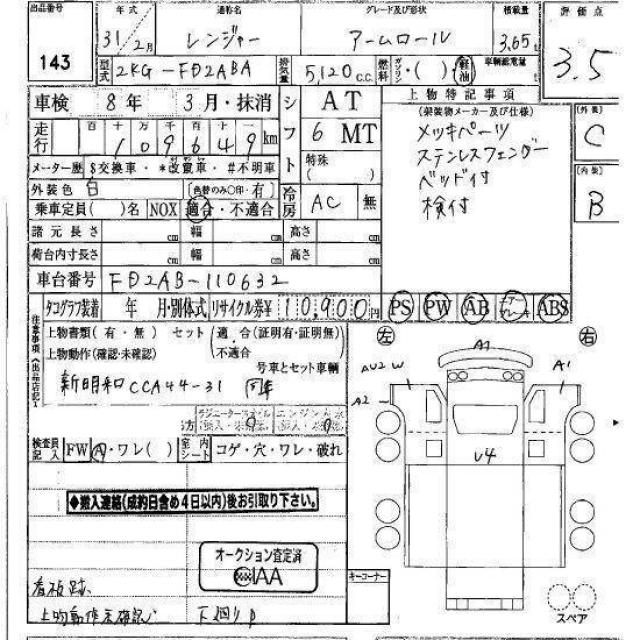 出品番号 年式 通称名 グレード及び形状 積載量 評価点
143 31/2月 レンジャー アームロール 3.65t 3.5
型式 2KG-FD2ABA 排気量 5,120 C.C. 燃料 ガソリン・( )・軽油 車輌総重量 t
車検 8年 3月・抹消 シフト AT 上物特記事項
(架装物メーカー及び仕様)
走行 百 十 万 千 百 十 109649km 6 MT メッキパーツ [外装] C
メーター歴 $交換車・*改竄車・#不明車 特殊( ) ステンレスフェンダー
外装色 白 [色替のみ○印・有] 冷房 AC 無 ベッド付 [内装] B
乗車定員( )名 NOX 適合・不適合 検付
諸元長さ cm 幅 cm 高さ cm
荷台内寸長さ cm 幅 cm 高さ cm
車台番号 FD2AB-110632
タコグラフ装着 年 月・別体式 リサイクル券¥ 10,900円 PS PW AB エアーブレーキ ABS
注意事項(出品店記入)
上物書類(有・無) セット(適合(証明有・証明無) 左 右
上物動作(確認・未確認) 不適合
号車とセット車輌
新明和CCA44-31 同年
A1 AU2 W A1
A2
U4
検査員記入 FW A・ワレ( ) 室内シート コゲ・穴・ワレ・破れ
◆搬入連絡(成約日含め4日以内)後お引取り下さい。
オークション査定済
IAA
キーコーナー
看板跡
上物動作未確認 下廻りP
スペア